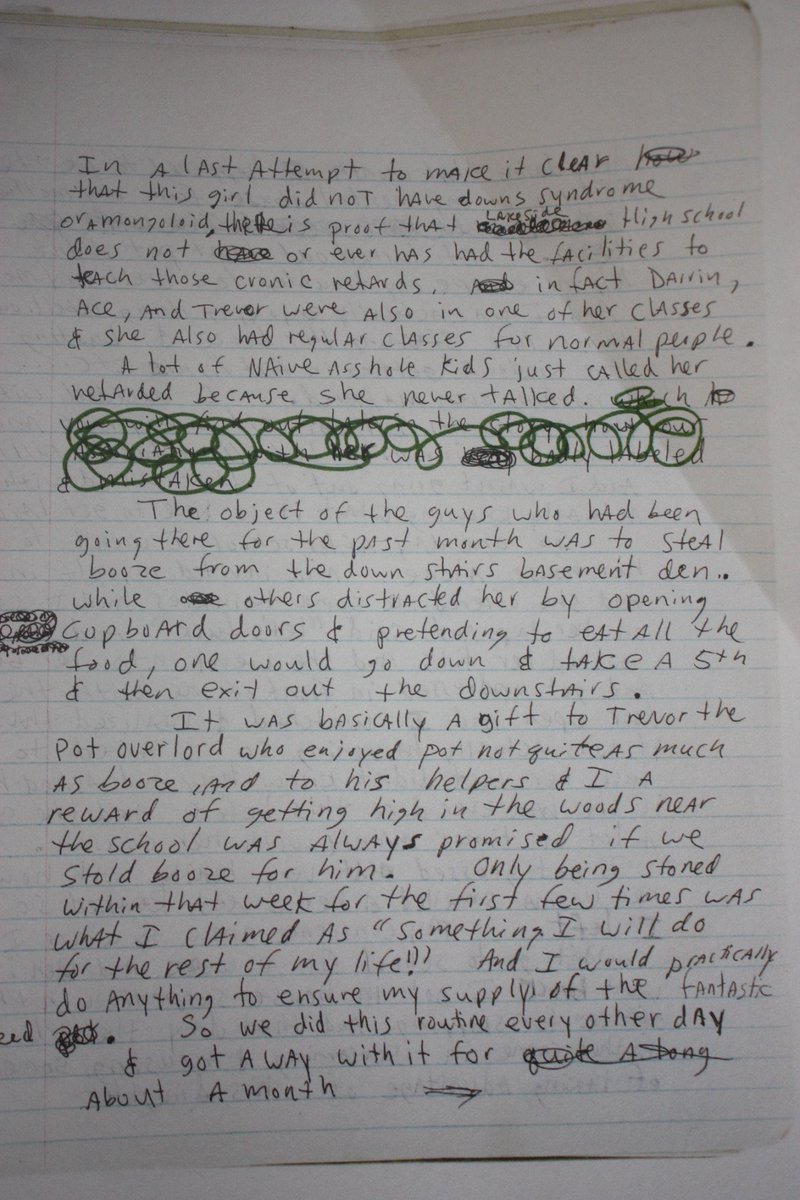 In A lAst Attempt to mAke it cleAr
thAt this girl did noT hAve downs syndrome
or A mongoloid, there is proof thAt LAKeside High school
does not hAve or ever hAs hAd the fAcilities to
teAch those cronic retArds. And in fAct DArrin,
Ace, And Trevor were Also in one of her clAsses
& she Also hAd regulAr clAsses for normAl people.
A lot of NAive Asshole kids just cAlled her
retArded becAuse she never tAlked. which
you will find out lAte in the story how our
with her wAs bAdly lAbeled
& mistAken
The object of the guys who hAd been
going there for the pAst month wAs to steAl
booze from the down stAirs bAsement den..
while others distrActed her by opening
CupboArd doors & pretending to eAt All the
food, one would go down & tAKe A 5th
& then exit out the downstAirs.
It wAs bAsicAlly A gift to Trevor the
Pot overlord who enjoyed pot not quite As much
As booze, And to his helpers & I A
rewArd of getting high in the woods neAr
the school wAs AlwAys promised if we
Stold booze for him. Only being stoned
within thAt week for the first few times wAs
whAt I clAimed As "something I will do
for the rest of my life!!" And I would prActicAlly
do Anything to ensure my supply of the fAntAstic
eed. So we did this routine every other dAy
& got AwAy with it for quite A long
About A month →